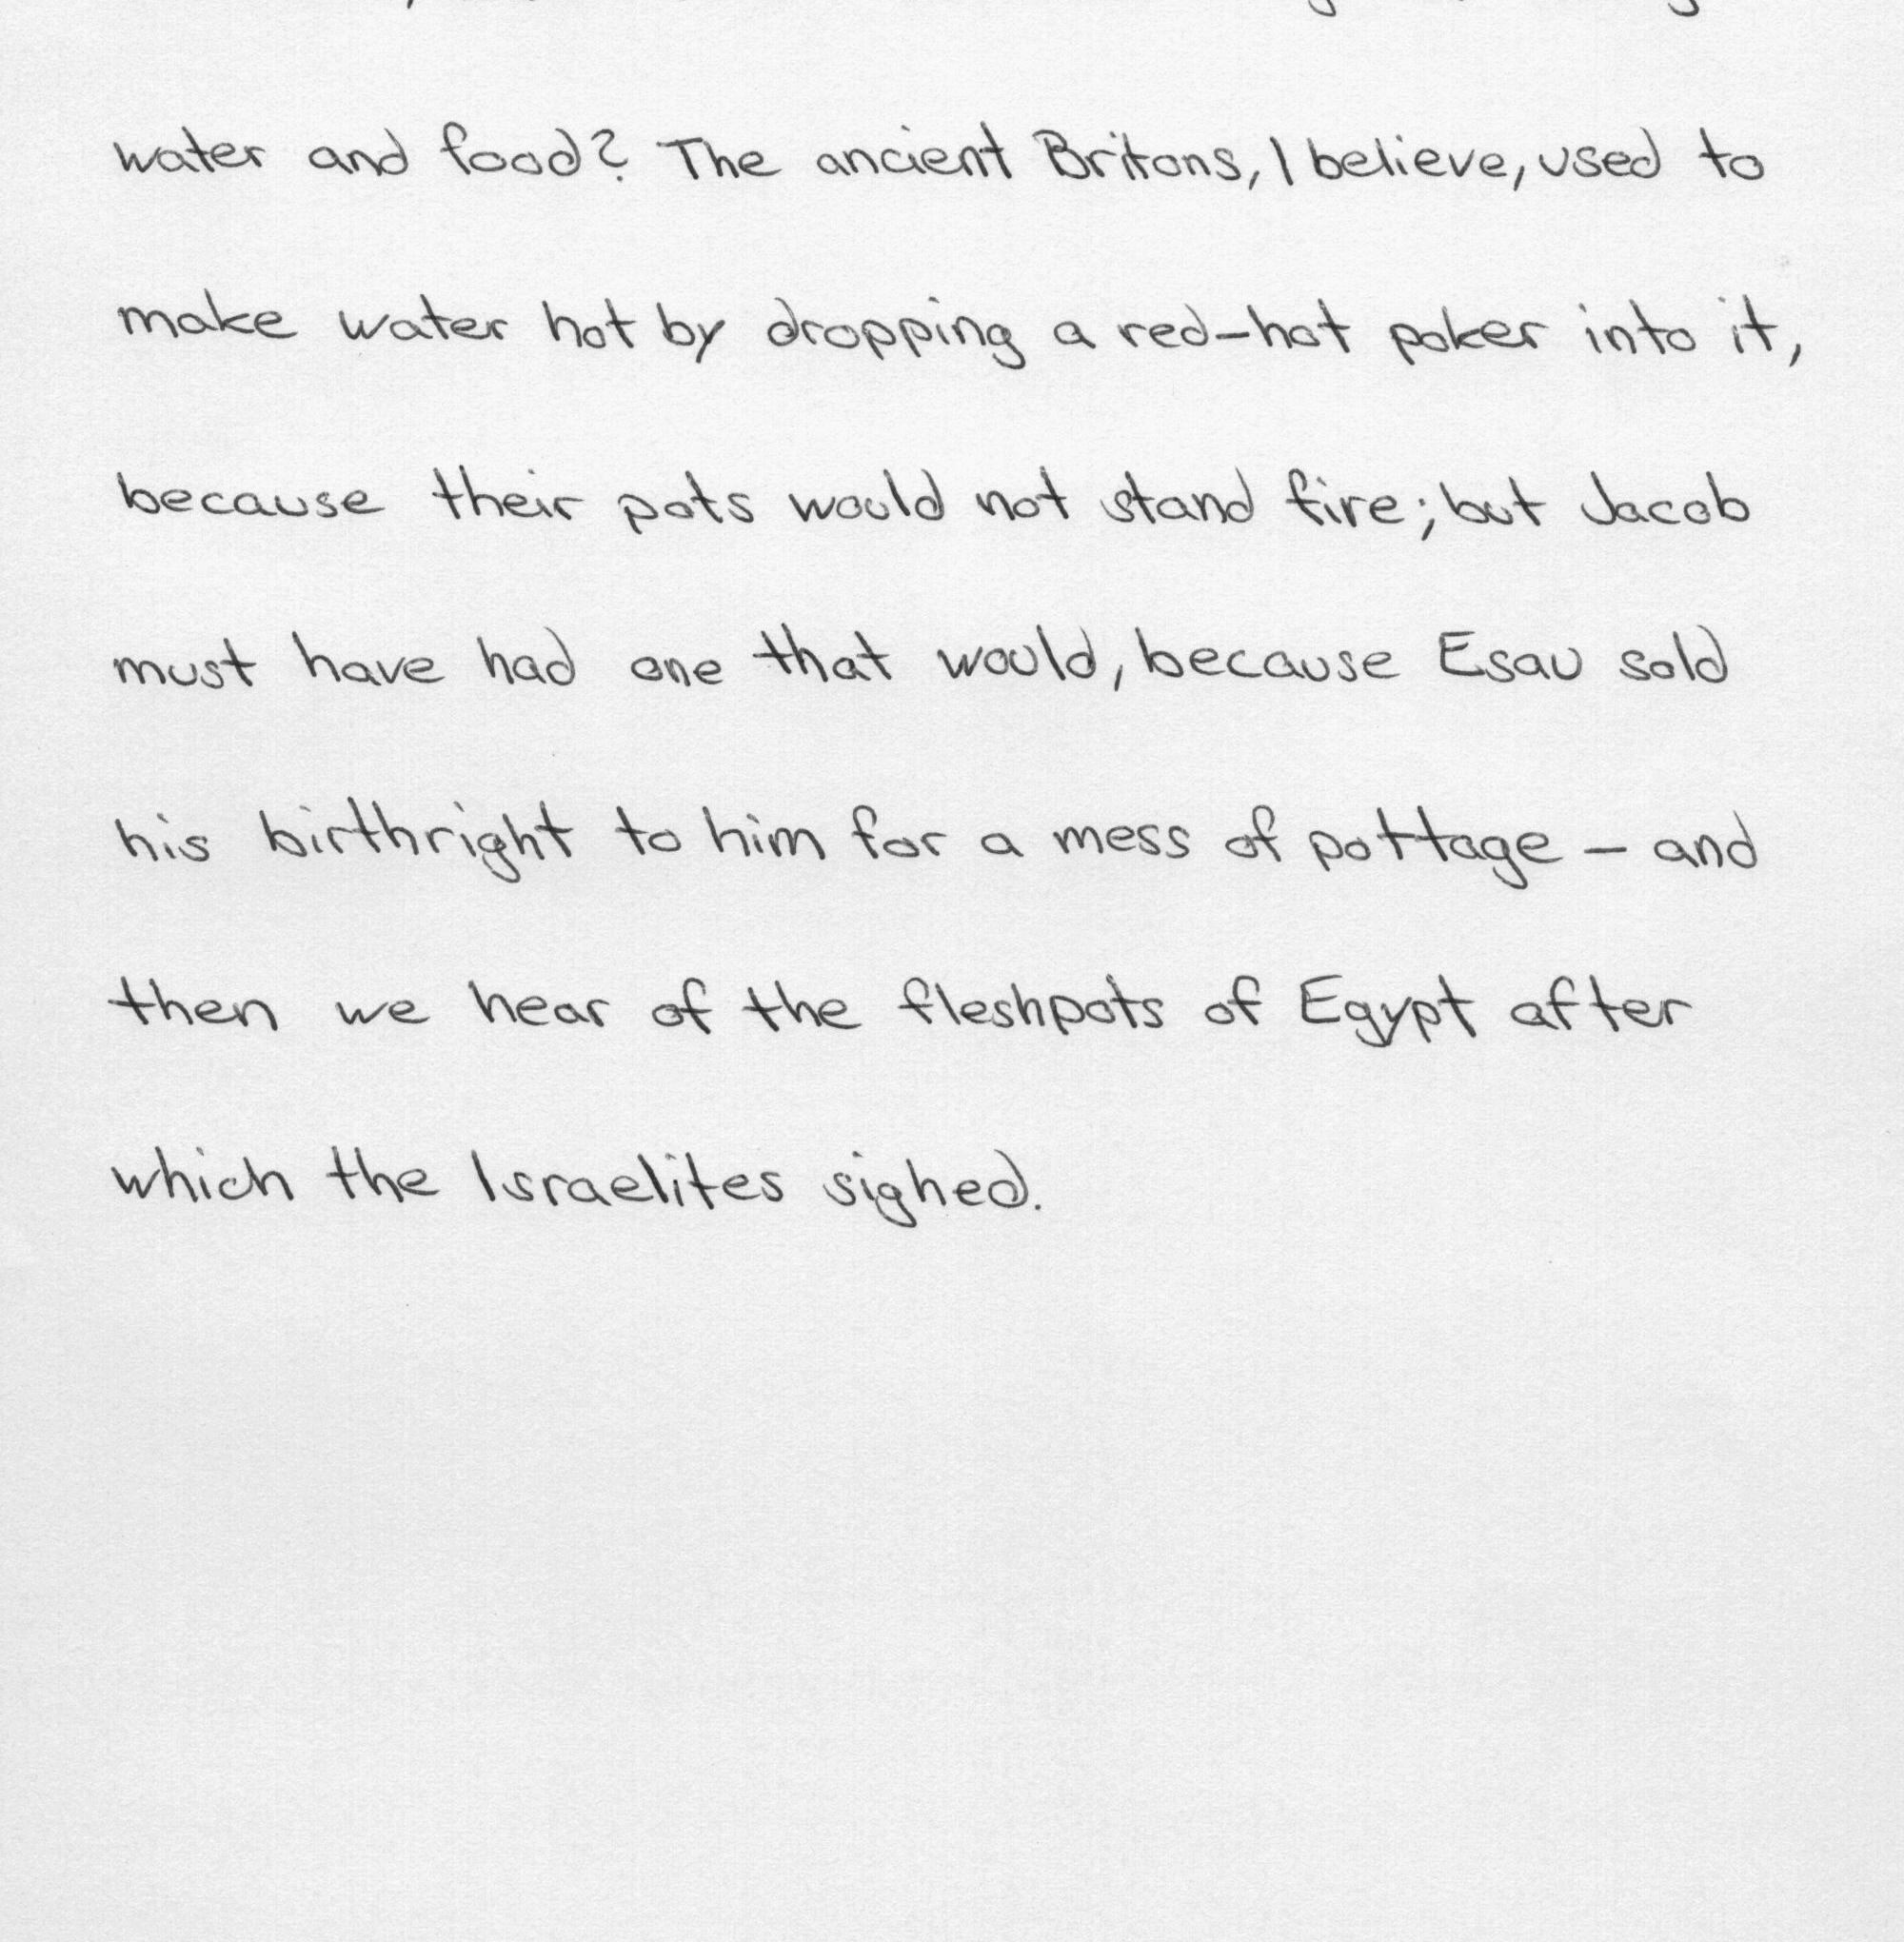 water and food? The ancient Britons, I believe, used to
make water hot by dropping a red-hot poker into it,
because their pots would not stand fire; but Jacob
must have had one that would, because Esau sold
his birthright to him for a mess of pottage – and
then we hear of the fleshpots of Egypt after
which the Israelites sighed.